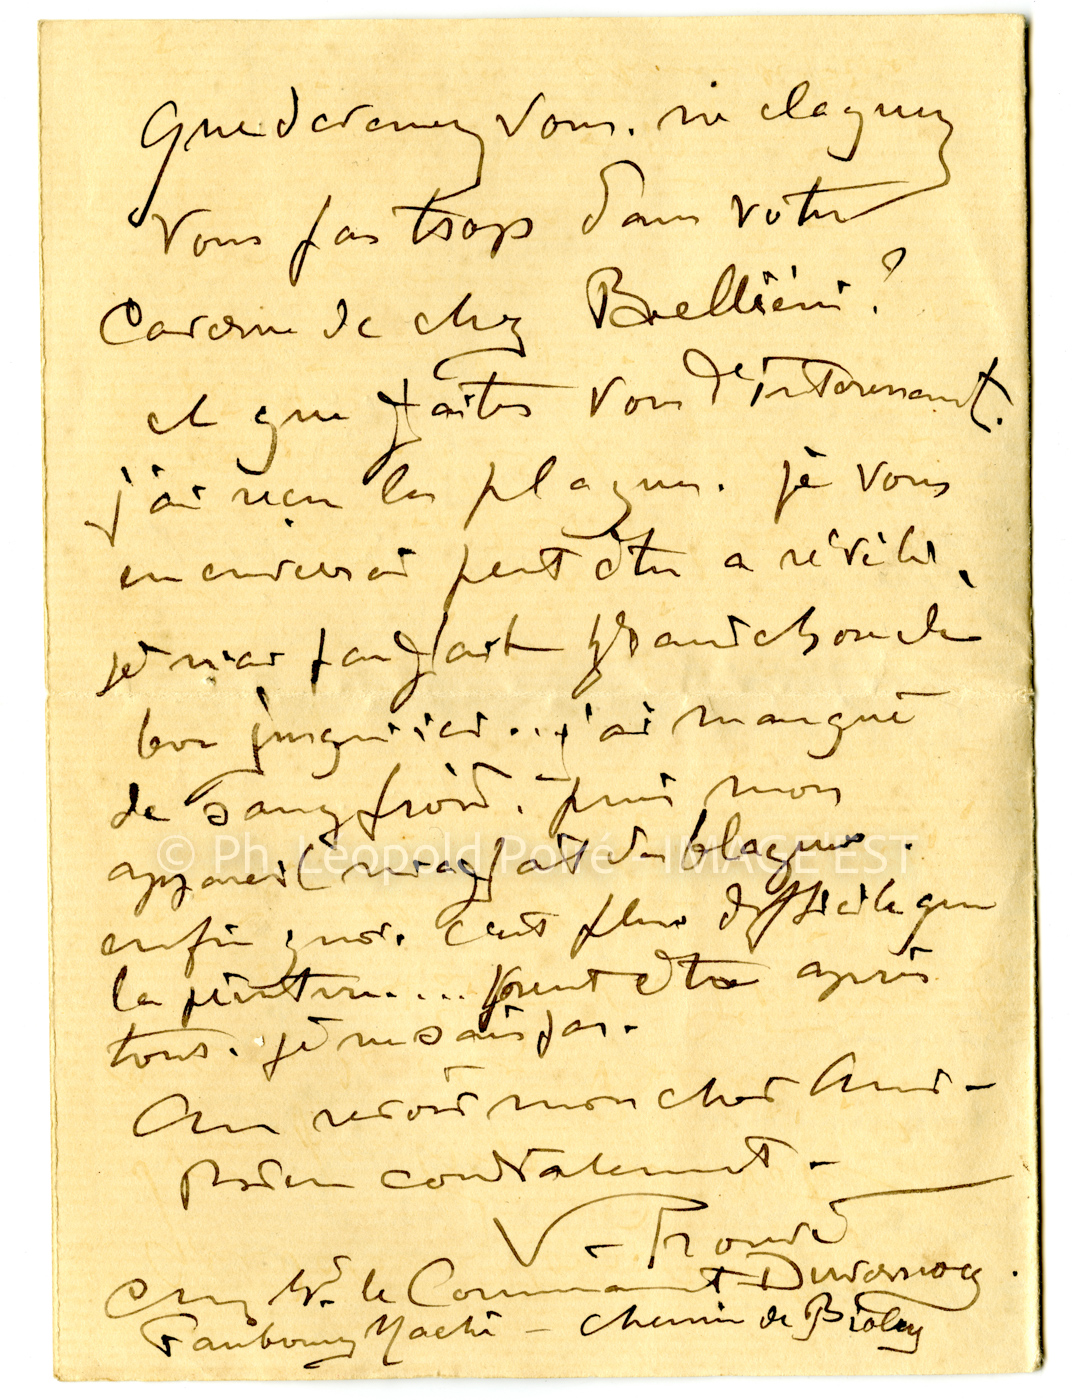 Que devenez vous. ne claquez
vous pas trop dans votre
caverne de chez Bellieni?
et que faites vous d'interessant.
j'ai recu les plaques. je vous
en enverrai peut etre a révéler,
je n'ai pas fait grand chose de
bon jusqu'ici... j'ai manqué
de sang froid. puis mon
appareil m'a fait des blagues.
© Ph. Léopold Poiré - IMAGE'EST
enfin quoi. c'est plus difficile que
la peinture.... peut etre après
tout. je ne sais pas.
Au revoir mon cher Ami -
bien cordialement -
V - Prouvé
chez Mr. le Commandant Duvernoy.
Faubourg - chemin de